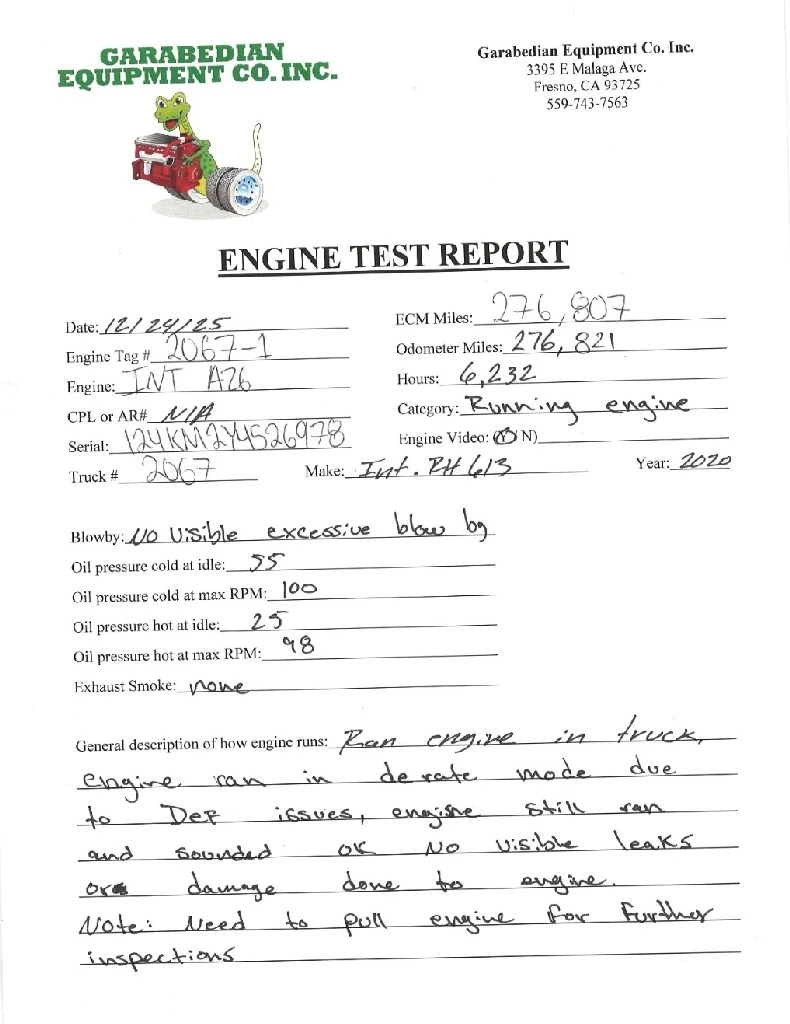 GARABEDIAN
EQUIPMENT CO. INC.
Garabedian Equipment Co. Inc.
3395 E Malaga Ave.
Fresno, CA 93725
559-743-7563
ENGINE TEST REPORT
Date: 12/24/25
ECM Miles: 276,807
Engine Tag # 2067-1
Odometer Miles: 276,821
Engine: INT A26
Hours: 6,232
CPL or AR# N/A
Category: Running engine
Serial: 124KM2Y4526978
Engine Video: (Y N)
Truck # 2067 Make: Int. RH 613 Year: 2020
Blowby: No Visible excessive blow by
Oil pressure cold at idle: 55
Oil pressure cold at max RPM: 100
Oil pressure hot at idle: 25
Oil pressure hot at max RPM: 98
Exhaust Smoke: none
General description of how engine runs: Ran engine in truck,
engine ran in de rate mode due
to DEF issues, engine still ran
and sounded OK No Visible leaks
or damage done to engine.
Note: Need to pull engine for further
inspections